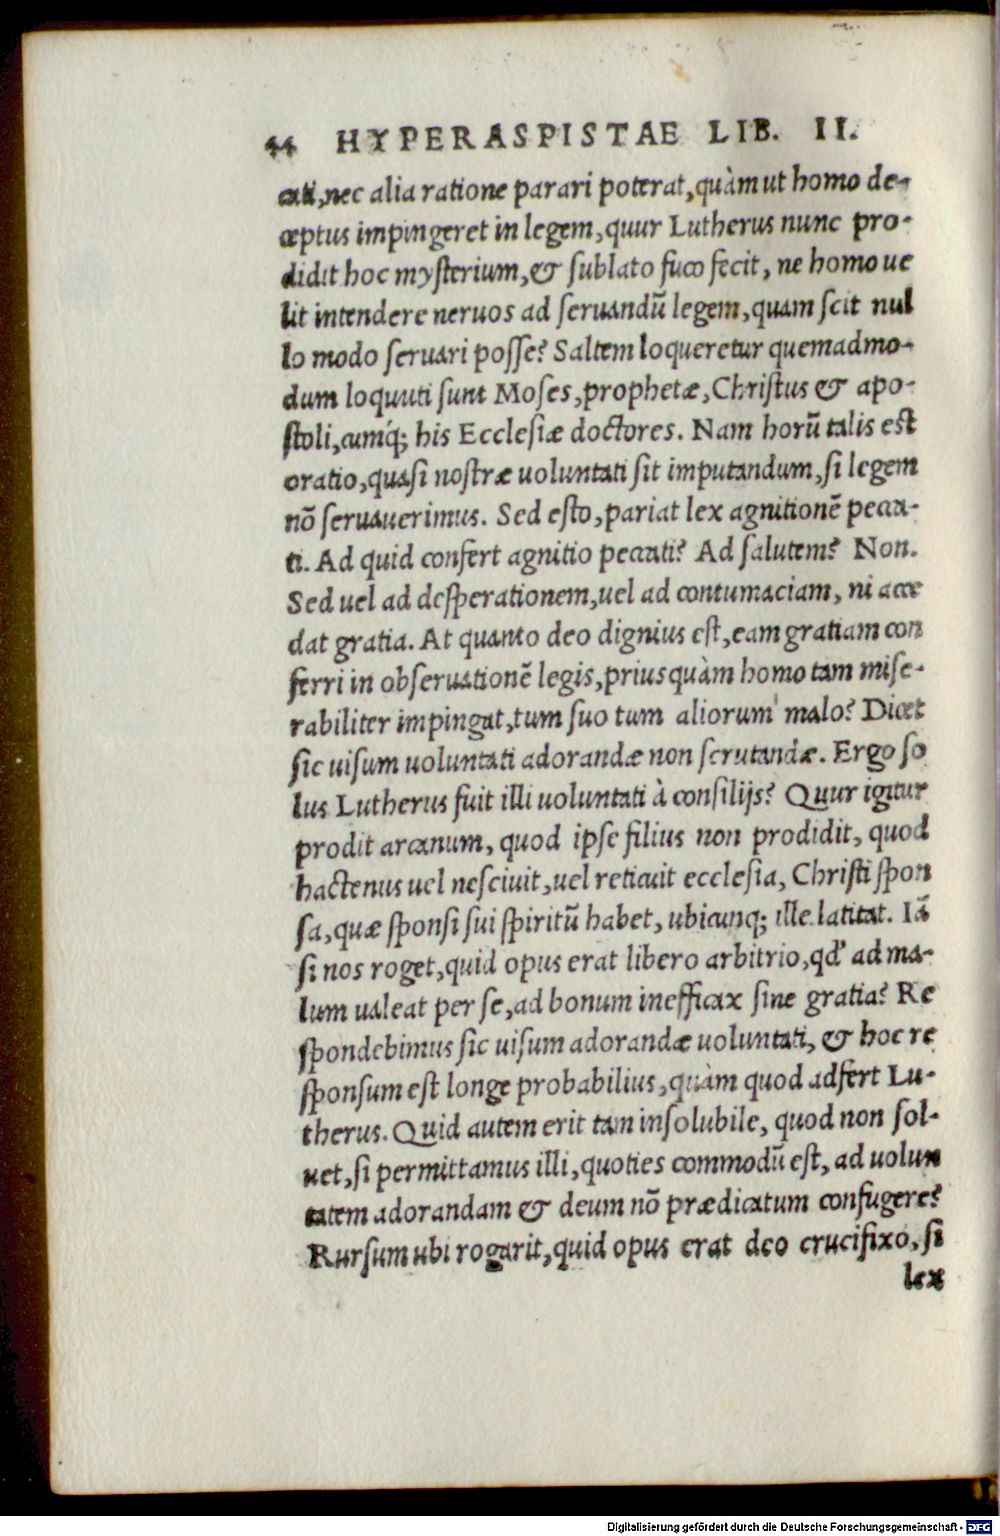 44 HYPERASPISTAE LIB. II.
cati, nec alia ratione parari poterat, quàm ut homo de-
ceptus impingeret in legem, quur Lutherus nunc pro-
didit hoc mysterium, & sublato fuco fecit, ne homo ue
lit intendere neruos ad seruandū legem, quam scit nul
lo modo seruari posse? Saltem loqueretur quemadmo-
dum loquuti sunt Moses, prophetæ, Christus & apo-
stoli, cumq́; his Ecclesiæ doctores. Nam horū talis est
oratio, quasi nostræ uoluntati sit imputandum, si legem
nō seruauerimus. Sed esto, pariat lex agnitionē pecca-
ti. Ad quid confert agnitio peccati? Ad salutem? Non.
Sed uel ad desperationem, uel ad contumaciam, ni acce
dat gratia. At quanto deo dignius est, eam gratiam con
ferri in obseruationē legis, priusquàm homo tam mise-
rabiliter impingat, tum suo tum aliorum malo? Dicet
sic uisum uoluntati adorandæ non scrutandæ. Ergo so
lus Lutherus fuit illi uoluntati à consilijs? Quur igitur
prodit arcanum, quod ipse filius non prodidit, quod
hactenus uel nesciuit, uel reticuit ecclesia, Christi spon
sa, quæ sponsi sui spiritū habet, ubicunq; ille latitat. Iā
si nos roget, quid opus erat libero arbitrio, qd' ad ma-
lum ualeat per se, ad bonum inefficax sine gratia? Re
spondebimus sic uisum adorandæ uoluntati, & hoc re
sponsum est longe probabilius, quàm quod adfert Lu-
therus. Quid autem erit tam insolubile, quod non sol-
uet, si permittamus illi, quoties commodū est, ad uolun
tatem adorandam & deum nō prædicatum confugere?
Rursum ubi rogarit, quid opus erat deo crucifixo, si
lex
Digitalisierung gefördert durch die Deutsche Forschungsgemeinschaft - DFG